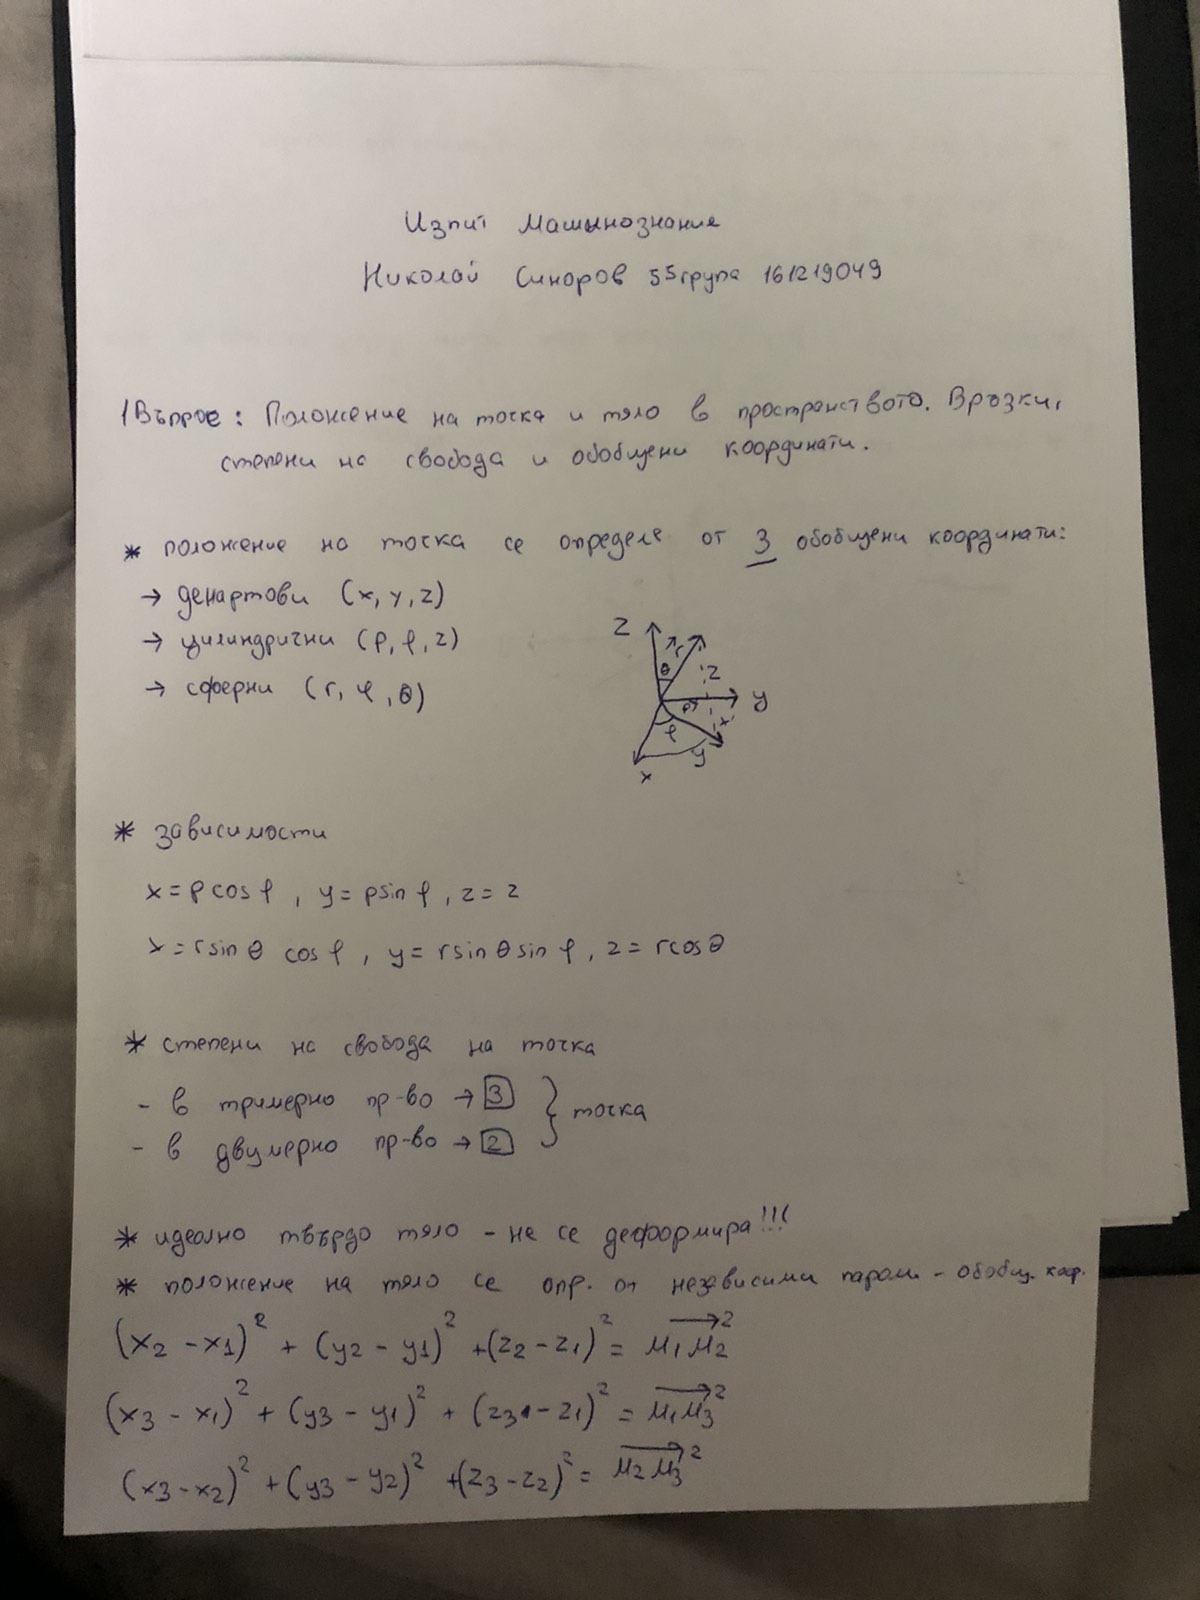 Изпит Машинознание
Николай Синоров 55група 161219049
1Въпрос: Положение на точка и тяло в пространството. Връзки,
степени на свобода и обобщени координати.
* положение на точка се определе от 3 обобщени координати:
→ декартови (x, y, z)
→ цилиндрични (ρ, φ, z)
→ сферни (r, φ, θ)
z θ r z y ρ x φ y x
* зависимости
x = ρ cos φ , y = ρ sin φ , z = z
x = r sin θ cos φ , y = r sin θ sin φ , z = r cos θ
* степени на свобода на точка
- в тримерно пр-во → 3
- в двумерно пр-во → 2 } точка
* идеално твърдо тяло - не се деформира!!!
* положение на тяло се опр. от независими парам - обобщ. коор.
(x2 - x1)² + (y2 - y1)² + (z2 - z1)² = M1M2²
(x3 - x1)² + (y3 - y1)² + (z3 - z1)² = M1M3²
(x3 - x2)² + (y3 - y2)² + (z3 - z2)² = M2M3²